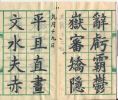 辭虧靈鬱
嶽審矯隱
九月十九日
平且直畫
文水夫赤